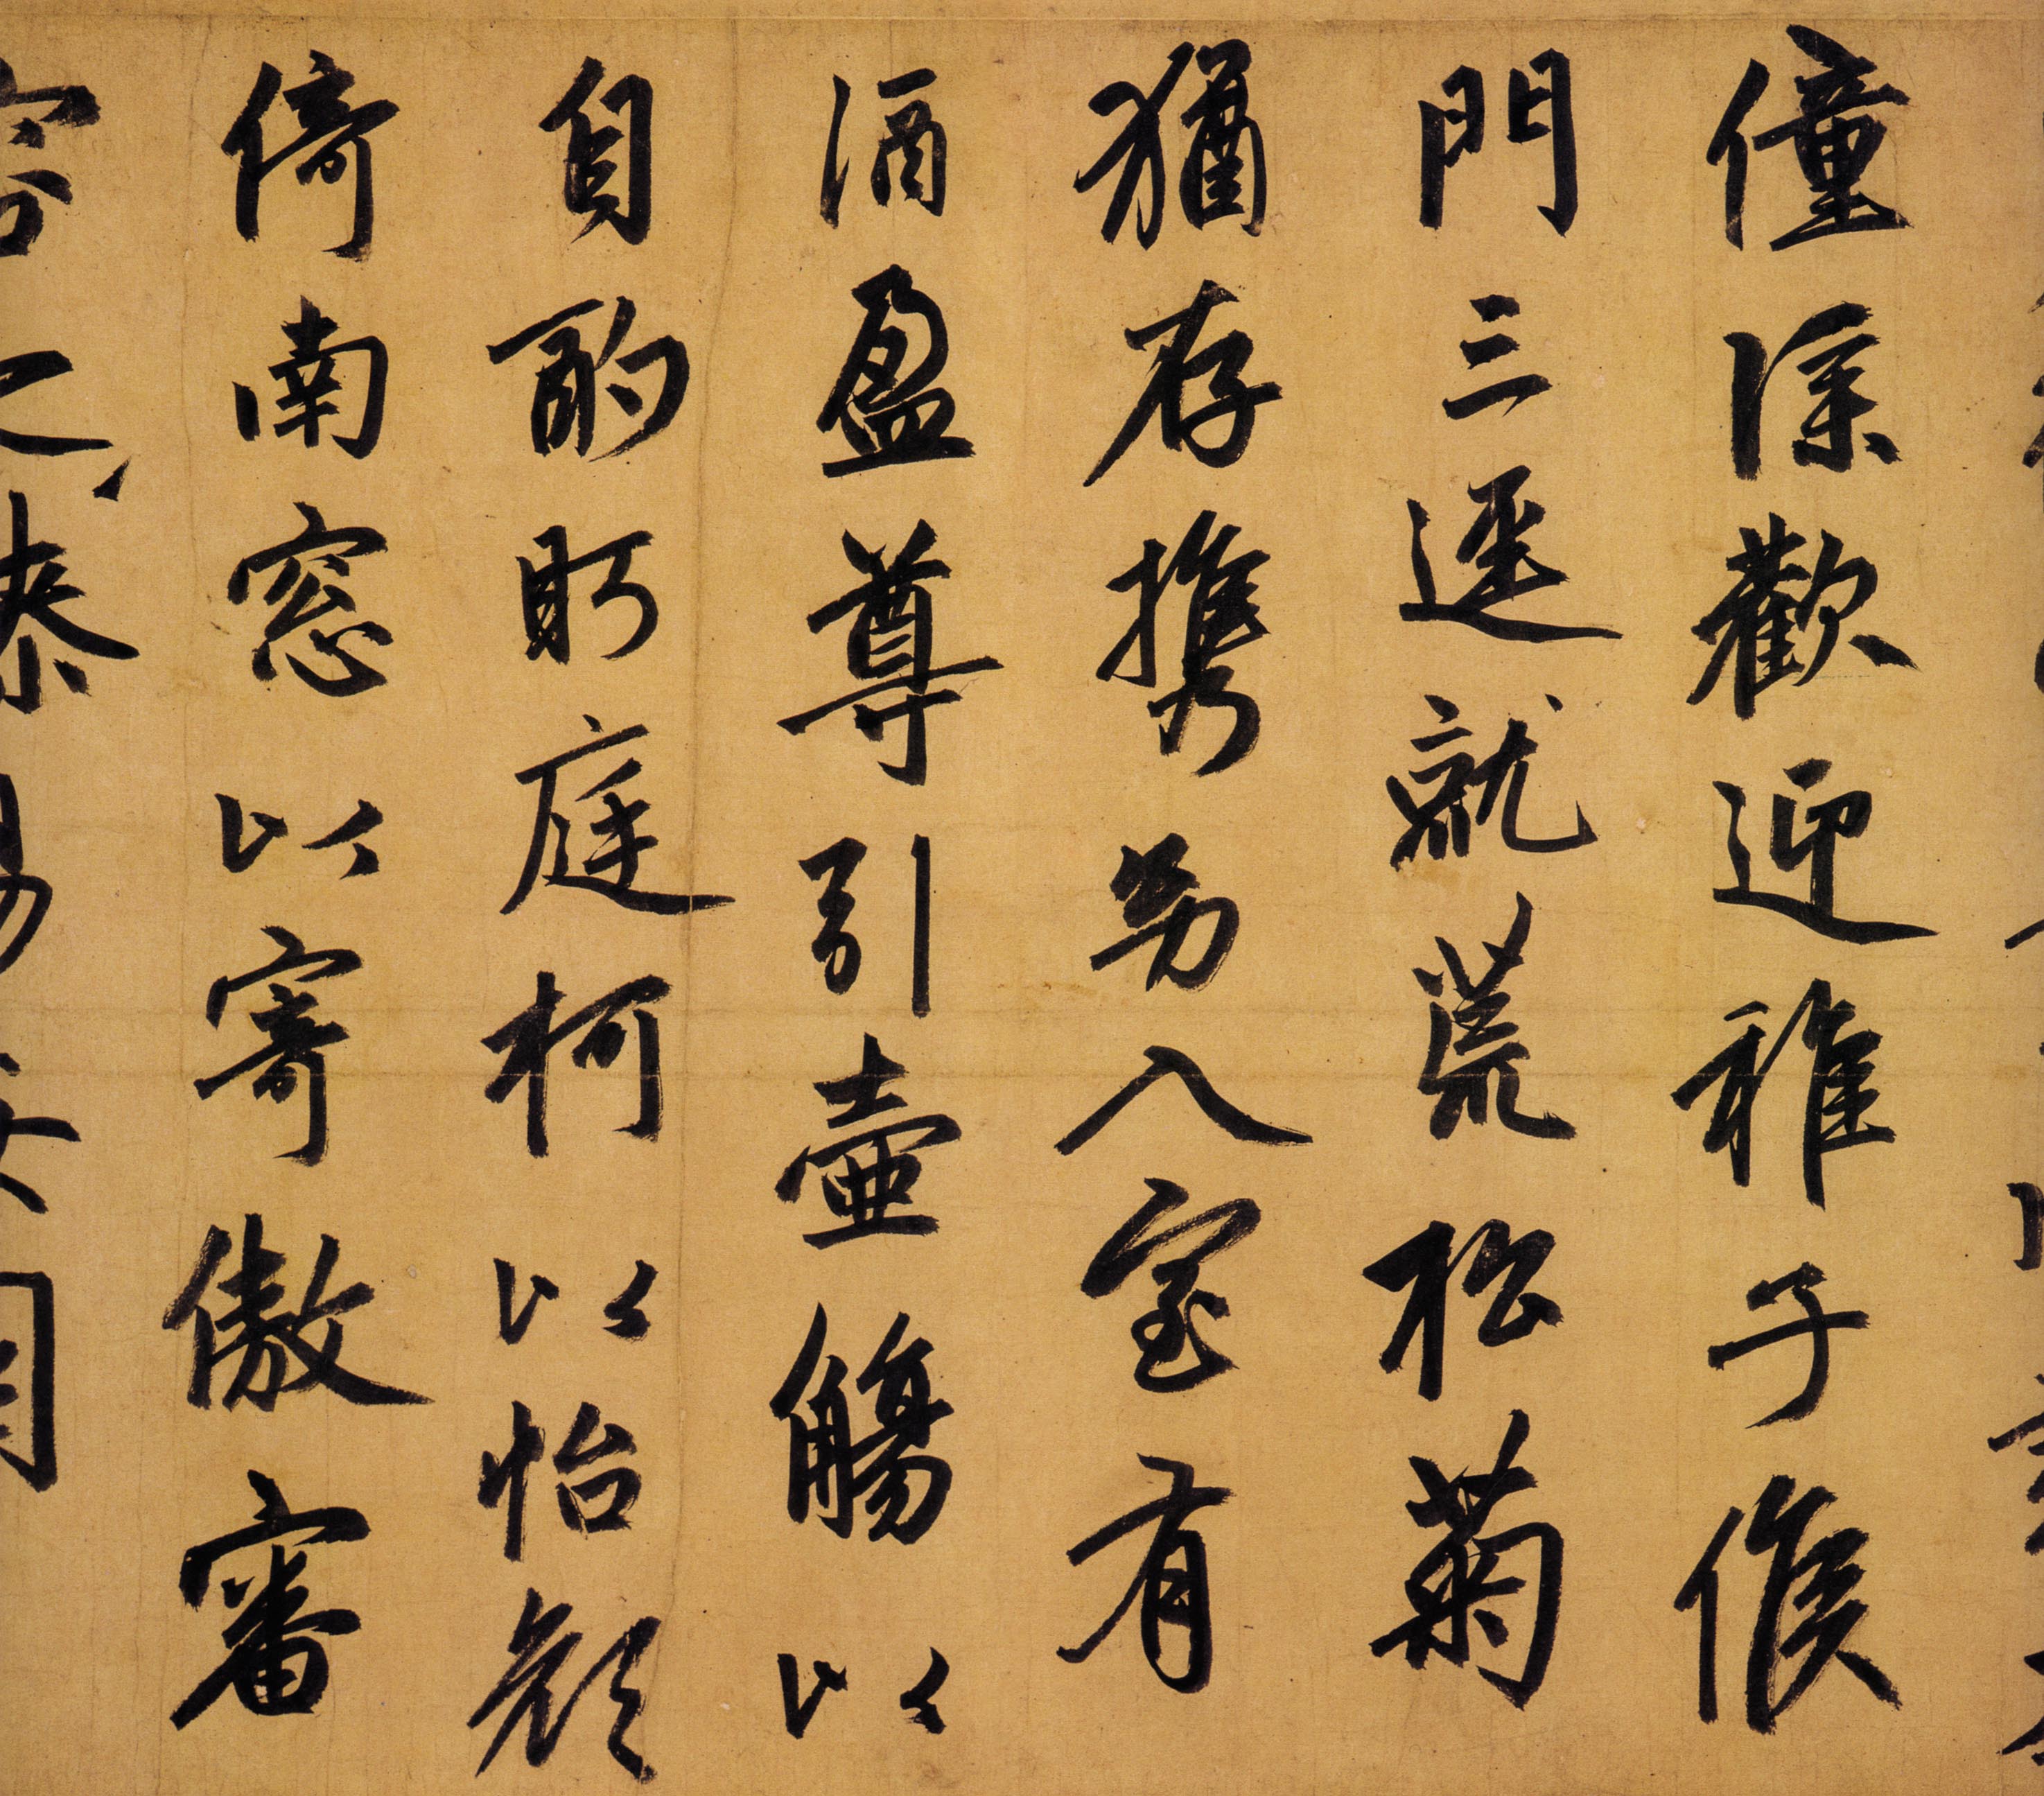 僮僕歡迎稚子候
門三逕就荒松菊
猶存携幼入室有
酒盈尊引壺觴以
自酌眄庭柯以怡顔
倚南窓以寄傲審
容之膝易安園